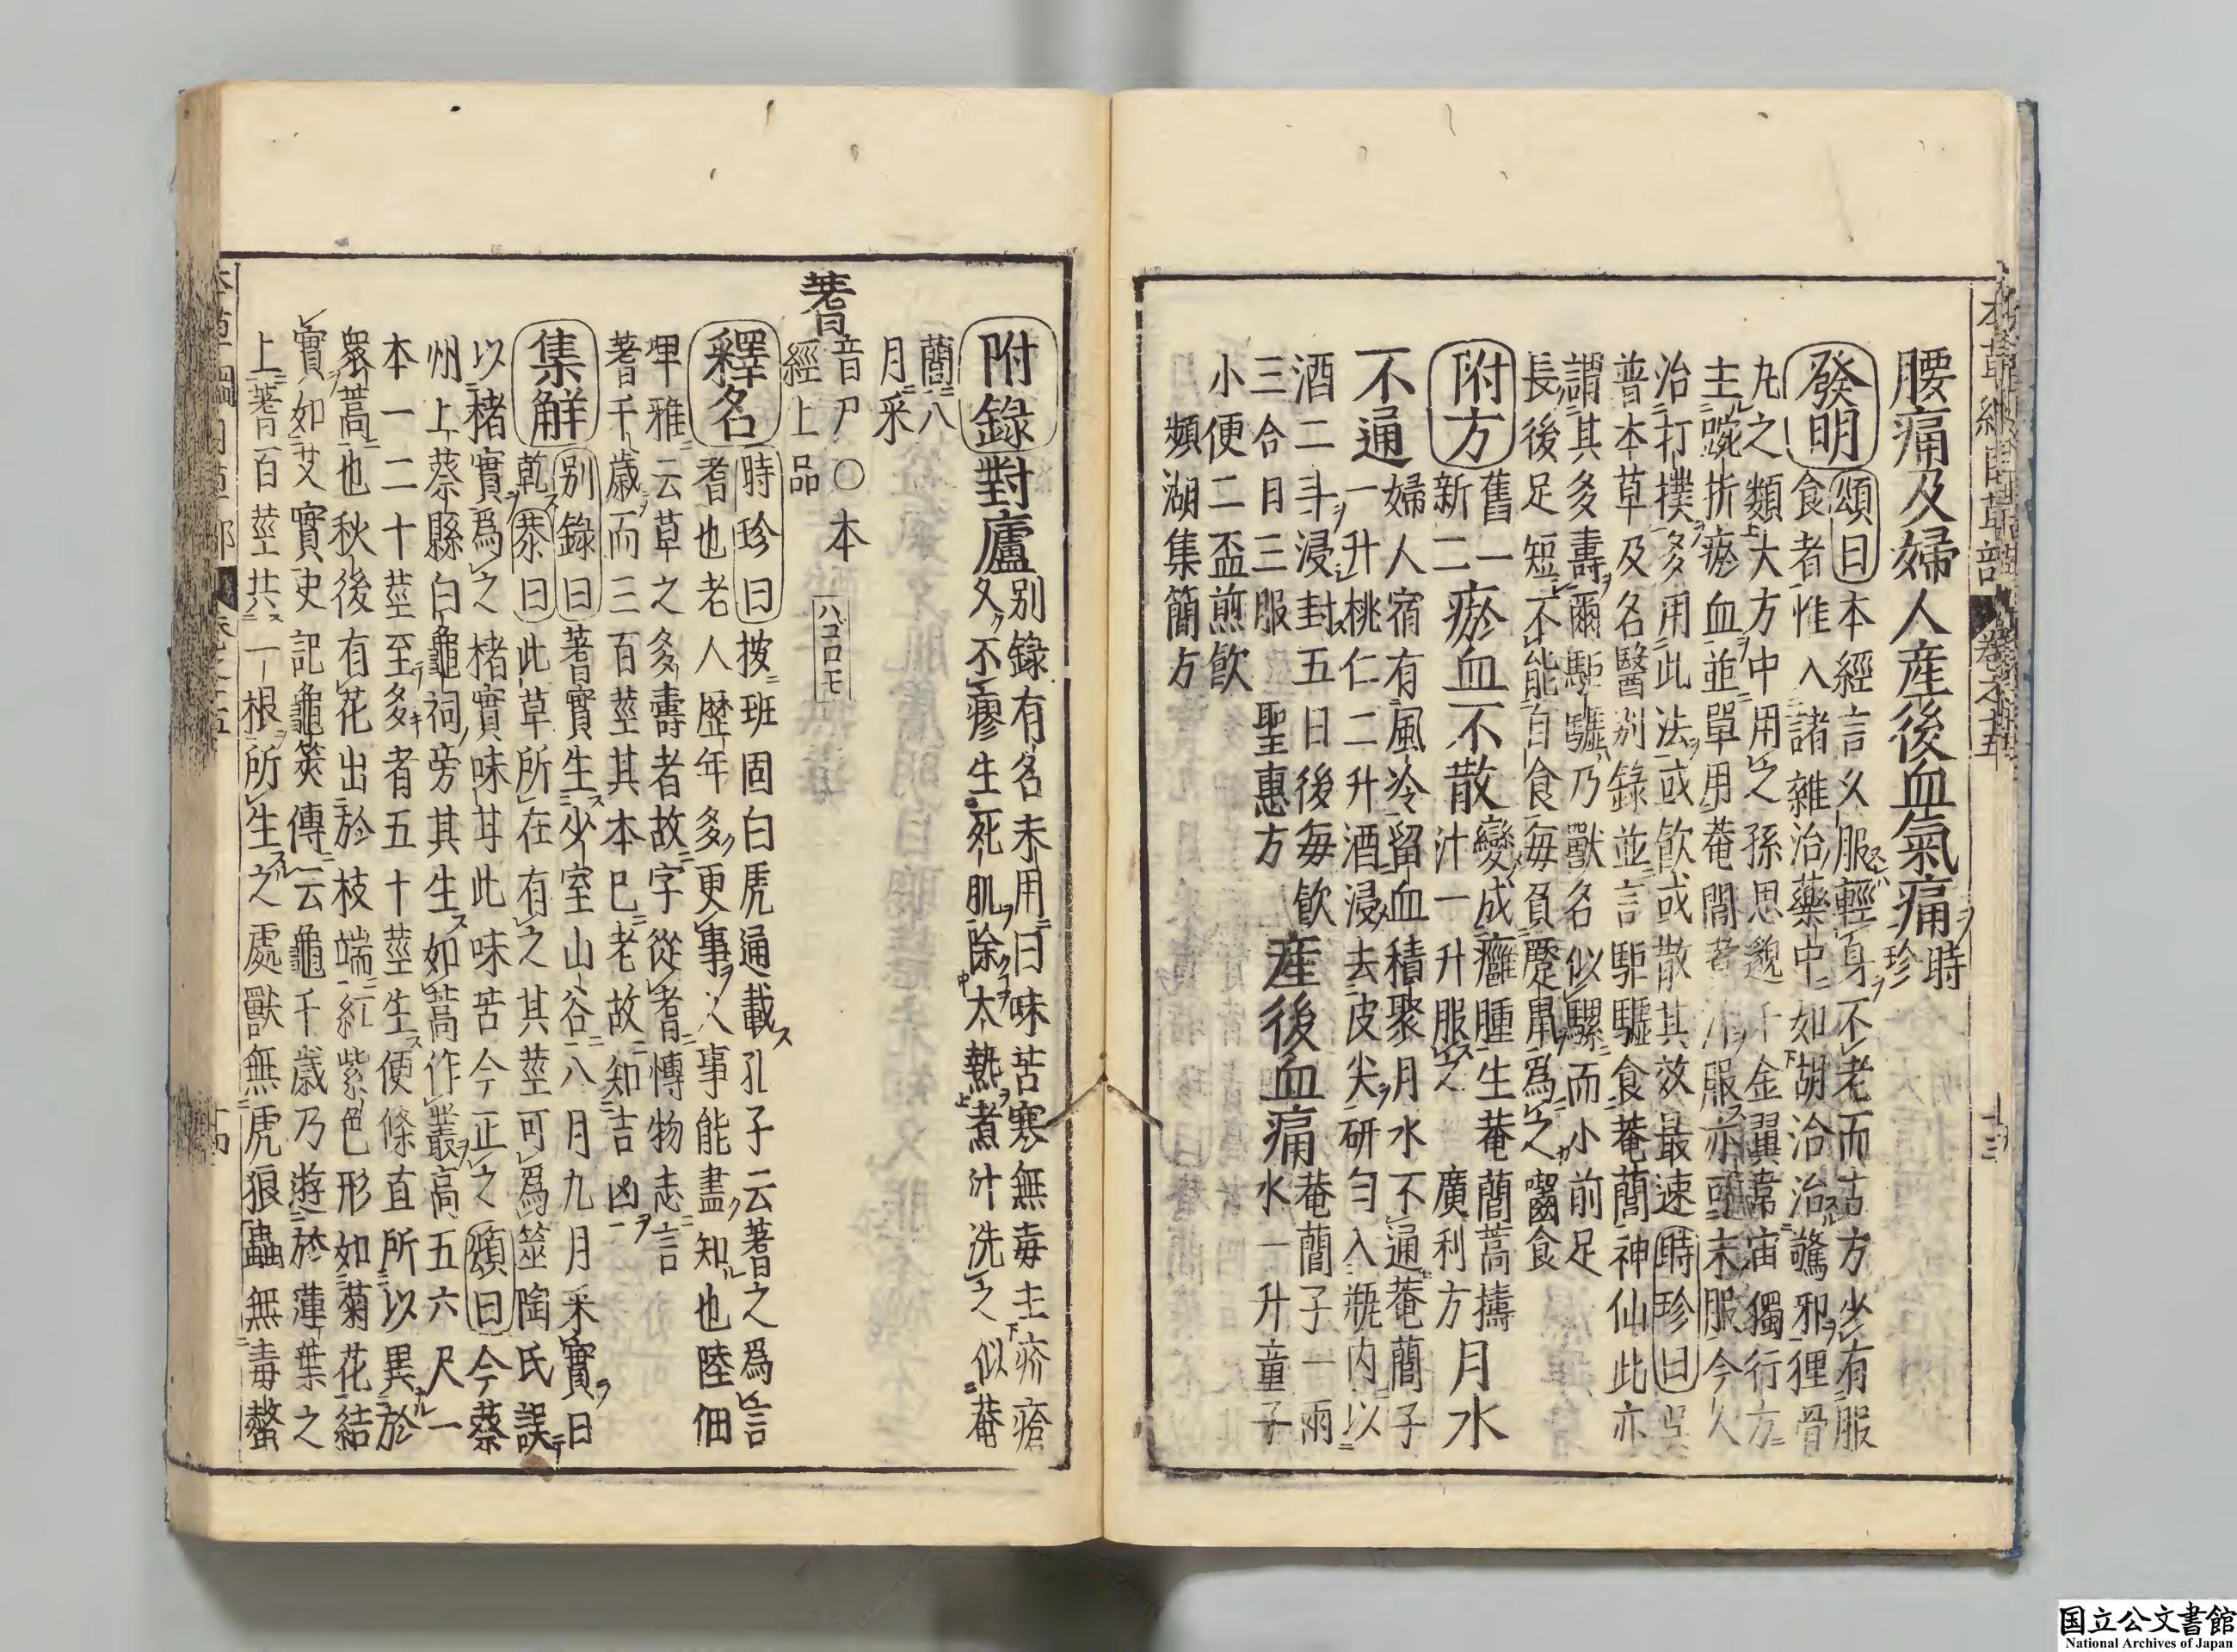 本草綱目草部 卷之十五 十三
腰痛及婦人産後血氣痛時珍
發明 頌曰本經言久服輕身不老而古方少有服
食者惟入諸雜治藥中如胡洽治驚邪狸骨
丸之類大方中用之孫思邈千金翼韋宙獨行方
主踠折瘀血並單用菴䕡煮汁服亦可末服今人
治打撲多用此法或飮或散其效最速 時珍曰吳
普本草及名醫别錄並言駏驉食菴䕡神仙此亦
謂其多壽爾駏驉乃獸名似騾而小前足
長後足短不能自食毎負蹷鼠爲之齧食
附方 舊一新二 瘀血不散 變成癰腫生菴䕡蒿擣汁一升服之 廣利方 月水
不通 婦人宿有風冷留血積聚月水不通菴䕡子
一升桃仁二升酒浸去皮尖研勻入瓶内以
酒二斗浸封五日後毎飮
三合日三服 聖惠方 産後血痛 菴䕡子一兩
水一升童子
小便二盃煎飮
頻湖集簡方
附錄 對廬 别錄有名未用曰味苦寒無毒主疥瘡
久不瘳生死肌除大熱煮汁洗之似菴
䕡八
月采
蓍 音尸〇本經上品 ハコロモ
釋名 時珍曰按班固白虎通載孔子云蓍之爲言
耆也老人歷年多更事久事能盡知也陸佃
埤雅云草之多壽者故字從耆博物志言
蓍千歲而三百莖其本已老故知吉凶
集解 别錄曰蓍實生少室山谷八月九月采實日
乾 恭曰此草所在有之其莖可爲筮陶氏誤
以楮實爲之楮實味甘此味苦今正之 頌曰今蔡
州上蔡縣白龜祠旁其生如蒿作叢高五六尺一
本一二十莖至多者五十莖生便條直所以異於
衆蒿也秋後有花出於枝端紅紫色形如菊花結
實如艾實史記龜筴傳云龜千歲乃遊於蓮葉之
上蓍百莖共一根所生之處獸無虎狼蟲無毒螫
国立公文書館
National Archives of Japan